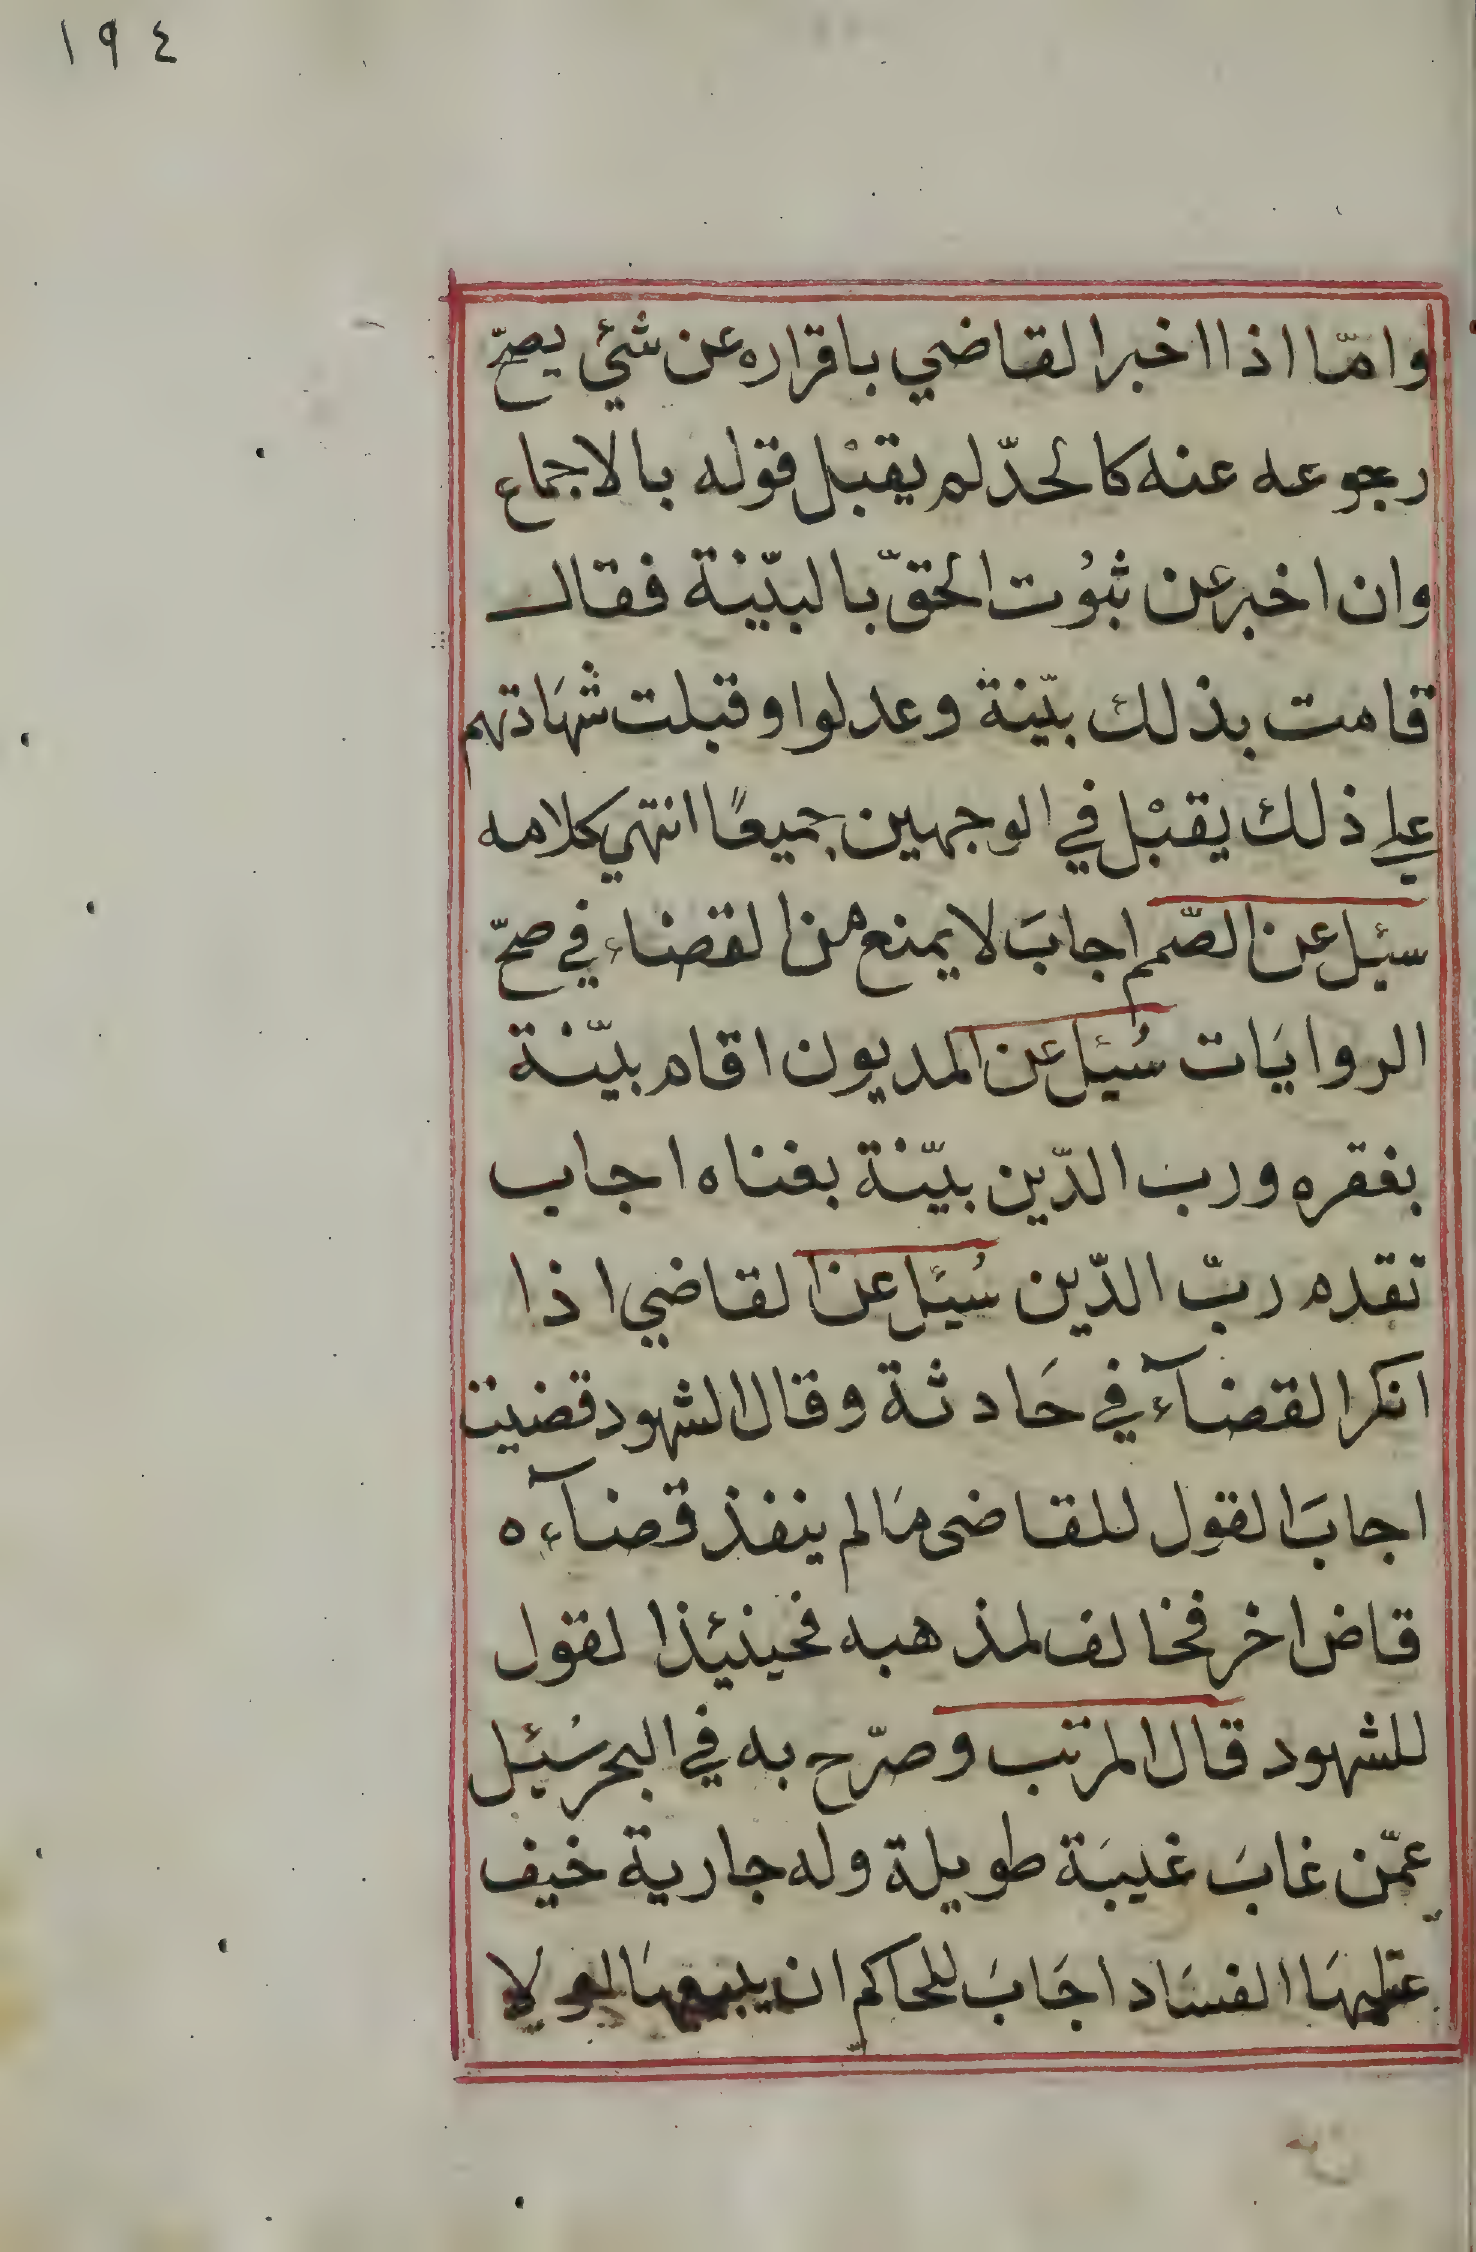 ١٩٤
وامّا اذا اخبر القاضي باقراره عن شئي يصحّ
رجوعه عنه كالحدّ لم يقبْل قوله بالاجماع
وان اخبر عن ثبُوت الحقّ بالبيّنة فقال
قامت بذلك بيّنة وعدلوا وقبلت شهَادتهم
علي ذلك يقبْل في الوجهين جميعًا انتهي كلامه
سئيل عن الصّمم اجابَ لا يمنع من القضاء في صحّ
الروايَات سُئيل عن المديون اقام بيّنة
بفقره ورب الدّين بيّنة بغناه اجاب
تقدم ربّ الدّين سُئيل عن القاضي اذا
انكر القضآء في حَادثة وقال الشهود قضيت
اجابَ القول للقاضى مَا لم ينفذ قضآءه
قاض اخر فخالف لمذهبه فحينئيذ القول
للشهود قال المرتب وصرّح به في البحر سُئيل
عمّن غابَ غيبَة طويلة وله جارية خيف
عليهَا الفسَاد اجَابَ للحاكم ان يبيعهَا لا